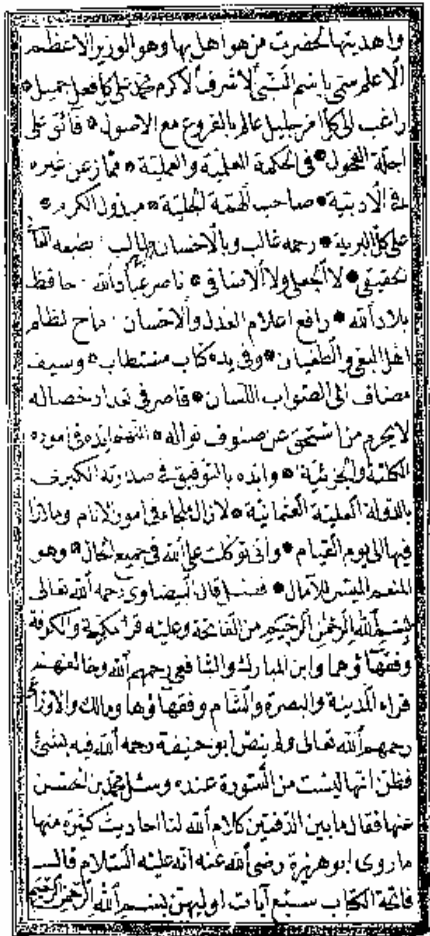 واهديتها لحضرت من هو اهل بها وهو الوزير الاعظم
الاعلم سمي باسم النبي الاشرف الاكرم محمد على كل فعل جميل *
راغب الى كل امر جليل عالم بالفروع مع الاصول * فائق على
اجلة الفحول * في الحكمة العلمية والعملية * ممتاز عن غيره
في الادبية * صاحب الهمة الجلية * مبذول الكرم *
على كل البرية * رحمه غالب وبالاحسان طالب
تحقيقى * لا الجعلى ولا الاضافى * ناصر عباد الله حافظ
بلاد الله * رافع اعلام العدل والاحسان ماح لنظام
اهل البغي والطغيان * وفي يده كتاب مستطاب * وسيف
مضاف الى الصواب اللسان * قاصر في تعداد خصاله
لا يحرم من استحق عن صنوف نواله * اللهم ايده في اموره
الكلية والجزئية * وايده بالتوفيق في صدارته الكبرى
بالدولة العلية العثمانية * لا زال ملجاء في امور الانام وملاذا
فيها الى يوم القيام * واني توكلت على الله في جميع الحال * وهو
المنعم الميسر للآمال * قال البيضاوى رحمه الله تعالى
بسم الله الرحمن الرحيم من الفاتحة وعليه قراء مكة والكوفة
وفقهاؤهما وابن المبارك والشافعى رحمهم الله وخالفهم
قراء المدينة والبصرة والشام وفقهاؤها ومالك والاوزاعى
رحمهم الله تعالى ولم ينص ابو حنيفة رحمه الله فيه بشئ
فظن انها ليست من السورة عنده وسئل محمد بن الحسن
عنها فقال ما بين الدفتين كلام الله لنا احاديث كثيرة منها
ما روى ابو هريرة رضى الله عنه انه عليه السلام قال
فاتحة الكتاب سبع آيات اوليهن بسم الله الرحمن الرحيم